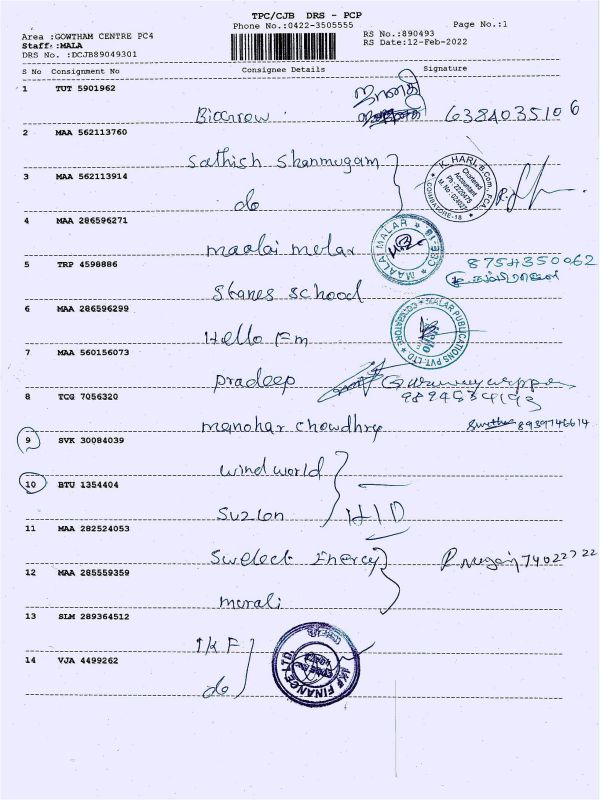 TPC/CJB DRS - PCP
Phone No.:0422-3505555
Page No.:1
Area :GOWTHAM CENTRE PC4
Staff :MALA
DRS No. :DCJB89049301
RS No.:890493
RS Date:12-Feb-2022
S No Consignment No Consignee Details Signature
1 TUT 5901962
Bioarrow 6384035106
2 MAA 562113760
Sathish Shanmugam
K. HARI B.Com., FCA
Chartered Accountant
COIMBATORE-18
3 MAA 562113914
do
4 MAA 286596271
maalai malar
MAALAI MALAR
CBE-18
5 TRP 4598886
Stanes School
8754350062
6 MAA 286596299
Hello Fm
MALAR PUBLICATIONS PVT. LTD
COIMBATORE
7 MAA 560156073
pradeep
8 TCG 7056320
manohar chowdhry 8939746614
9 SVK 30084039
wind world
10 BTU 1354404
Suzlon
11 MAA 282524053
Swelect Energy
12 MAA 285559359
murali
13 SLM 289364512
IKF
IKF FINANCE LTD.
14 VJA 4499262
do